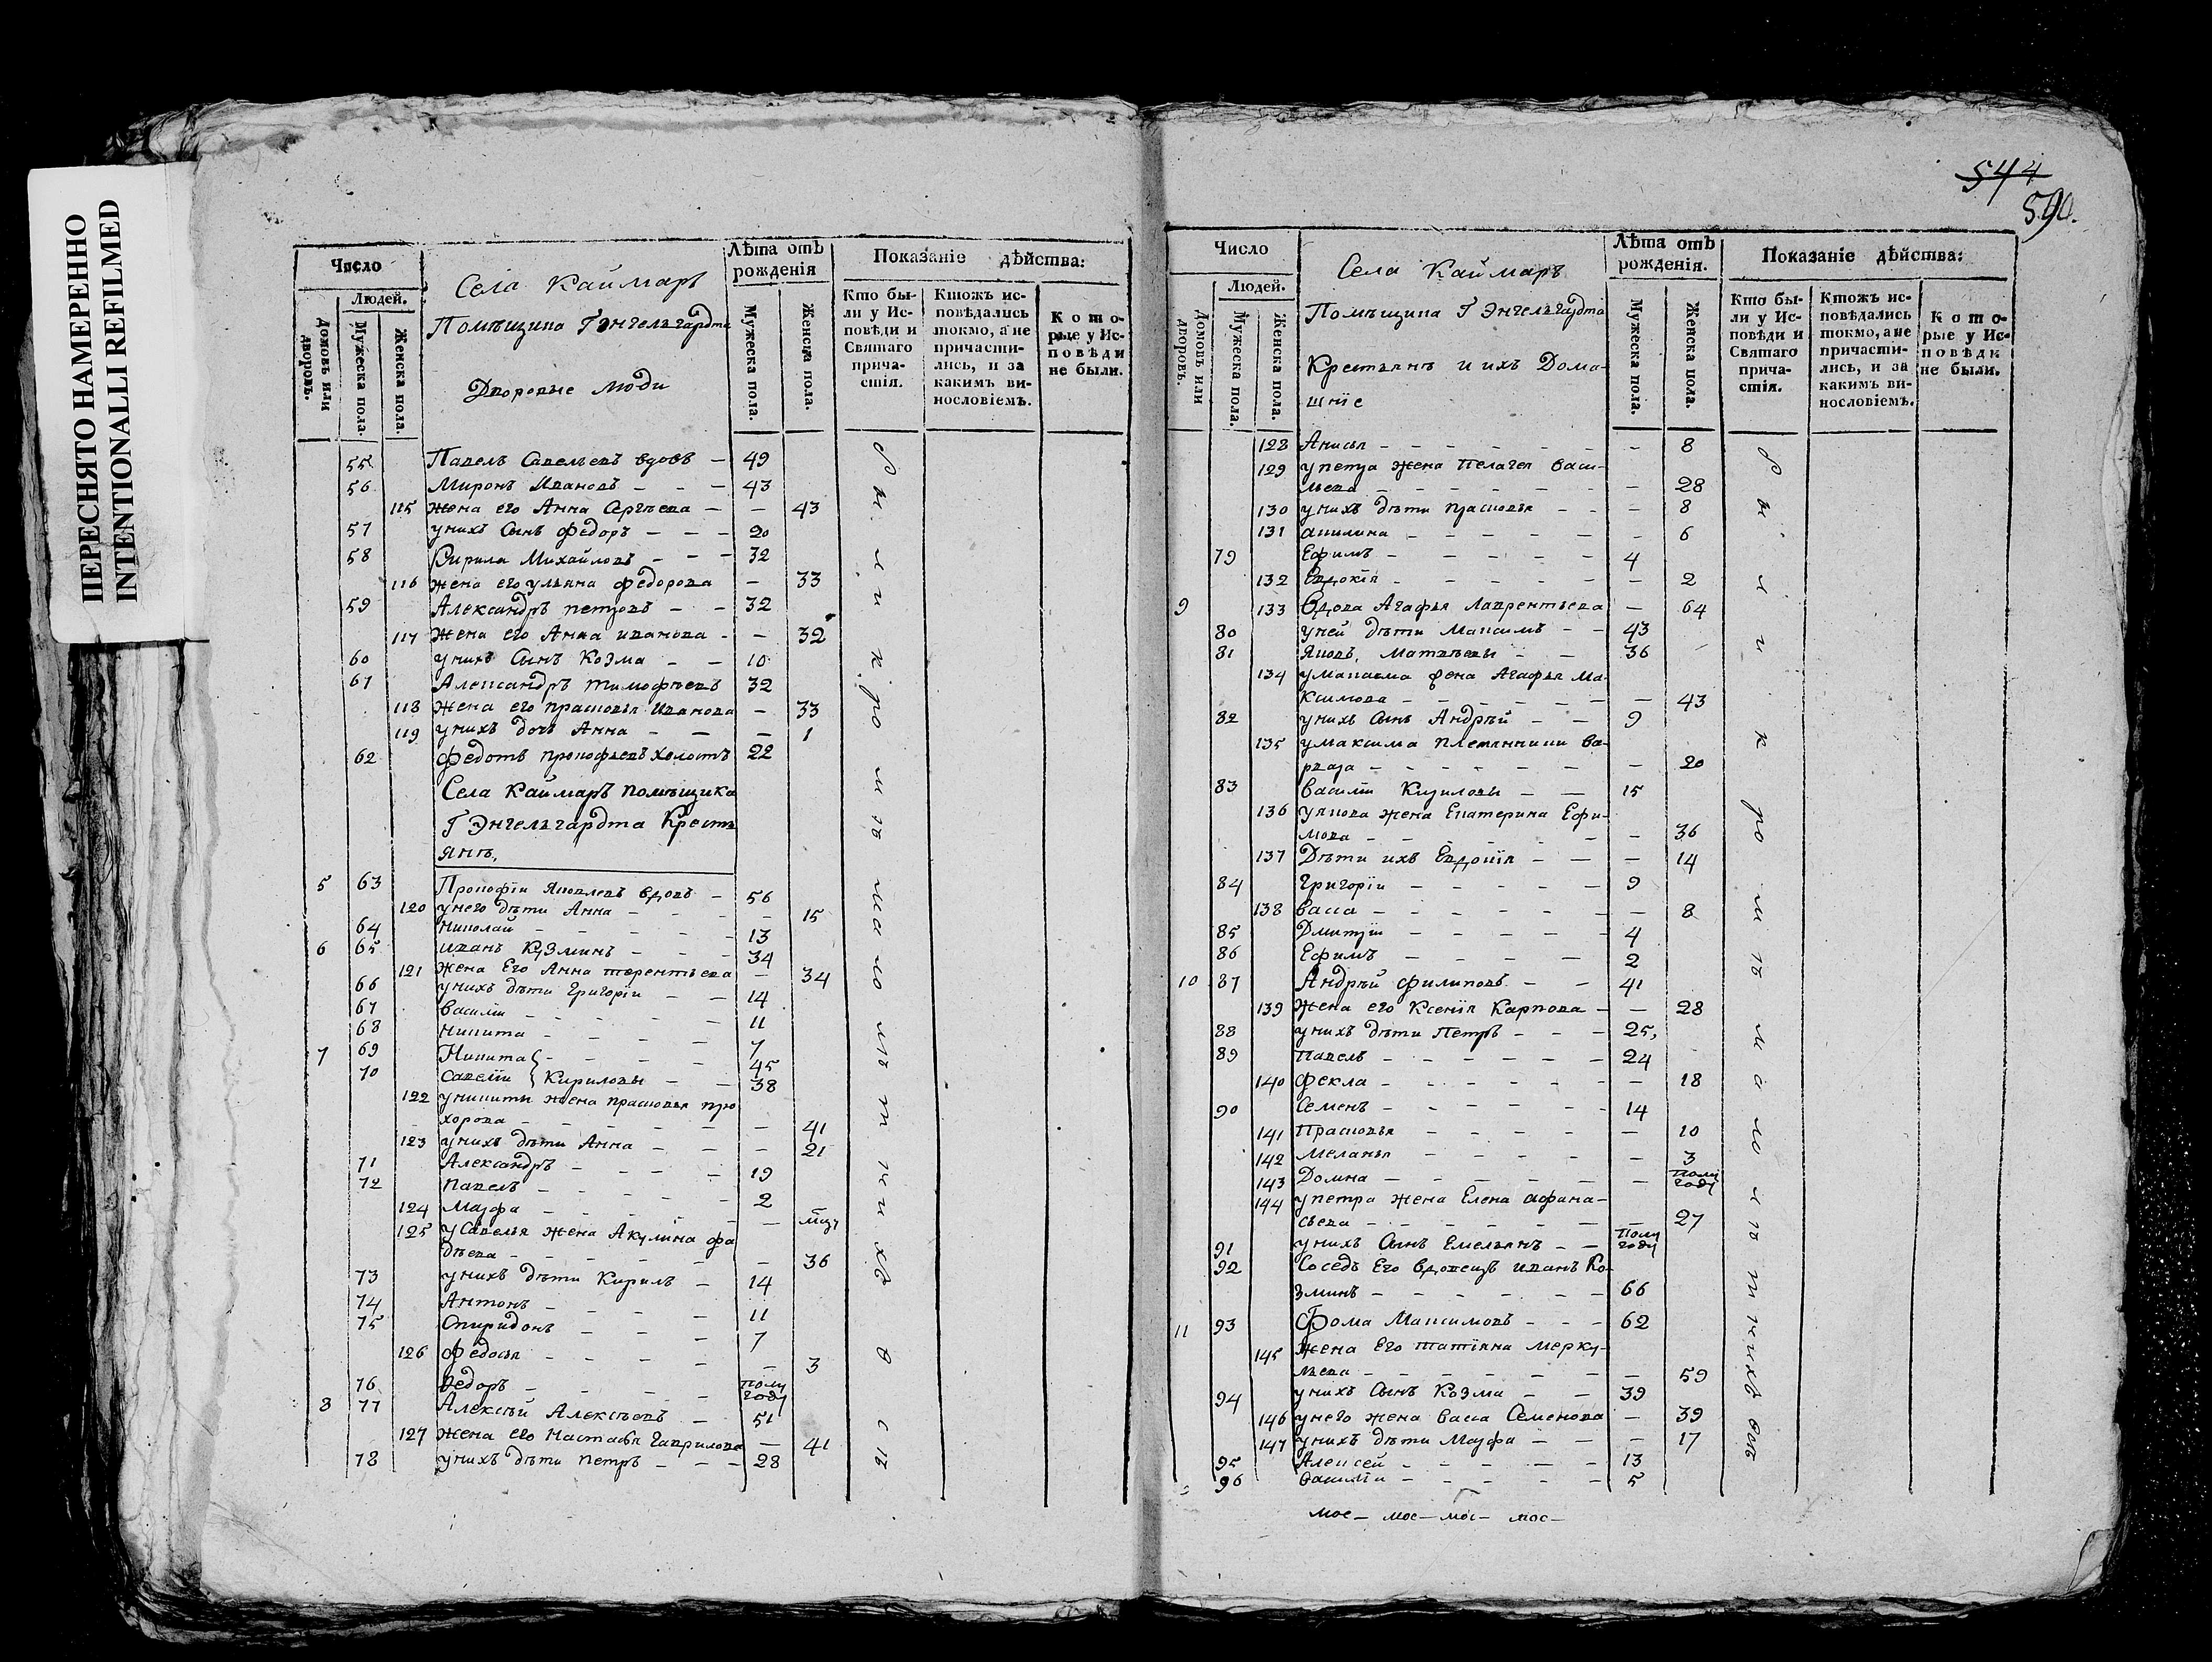 ПЕРЕСНЯТО НАМЕРЕННО
INTENTIONALLI REFILMED
Число
Людей.
Домовъ или дворовъ.
Мужеска пола.
Женска пола.
Села Каймаръ
Помѣщика Г Энгельгардта
Дворовые люди
Лѣта отъ рожденія
Мужеска пола.
Женска пола.
Показаніе дѣйства:
Кто бы-
ли у Ис-
повѣди и
Святаго
прича-
стія.
Ктожъ ис-
повѣдались
токмо, а не
причасти-
лись, и за
какимъ ви-
нословіемъ.
Кото-
рые у Ис-
повѣди
не были.
55 Павелъ Савельевъ вдовъ — 49
56 Миронъ Ивановъ — — — 43
115 жена его Анна Сергѣева — — 43
57 у нихъ сынъ федоръ — — — 20
58 Кирила Михайловъ — — — 32
116 жена его ульяна федорова — 33
59 Александръ петровъ — — 32
117 жена его Анна иванова - — 32
60 у нихъ Сынъ Козма — — 10
61 Александръ тимофѣевъ 32
118 жена его прасковья Иванова — 33
119 у нихъ дочь Анна — — — 1
62 федотъ прокофьевъ холостъ 22
Села Каймаръ помѣщика
Г Энгельгардта Кресть
янъ,
5 63 Прокофіи Яковлевъ вдовъ — 56
120 у него дѣти Анна — — 15
64 Николай — — — 13
6 65 иванъ Кузминъ — — — 34
121 жена Его Анна терентьева — 34
66 у нихъ дѣти Григоріи — — 14
67 Василіи — — — 11
68 Никита — — — 7
7 69 Никита — — 45
70 Савеліи Кириловы — — 38
122 у никиты жена прасковья про
хорова — — — — 41
123 у нихъ дѣти Анна — — — 21
71 Александръ — — — 19
72 Павелъ — — — 2
124 Марфа — — — —
125 у Савелья жена Акулина фа
дѣева — — — — 36
73 у нихъ дѣти Кирилъ — 14
74 Антонъ — — — 11
75 Спиридонъ — — — 7
126 федосья — — — — 3
76 федоръ — — — полу
году
8 77 Алексѣй Алексѣевъ — 51
127 жена его Настасья Гаврилова — 41
78 у нихъ дѣти петръ — — — 28
544
590.
Число
Людей.
Домовъ или дворовъ.
Мужеска пола.
Женска пола.
Села Каймаръ
Помѣщика Г Энгельгардта
Крестьянъ и ихъ Дома-
шніе
Лѣта отъ рожденія.
Мужеска пола.
Женска пола.
Показаніе дѣйства:
Кто бы-
ли у Ис-
повѣди и
Святаго
прича-
стія.
Ктожъ ис-
повѣдались
токмо, а не
причасти-
лись, и за
какимъ ви-
нословіемъ.
Кото-
рые у Ис-
повѣди
не были.
128 Анисья — — — — 8
129 у петра жена Пелагея васи-
льева — — — — 28
130 у нихъ дѣти прасковья — — — 8
131 акилина — — — — 6
79 Ефимъ — — — — 4
132 Евдокія — — — — 2
9 133 Вдова Агафья Лаврентьева — 64
80 у ней дѣти Максимъ — — 43
81 Яковъ, Матвѣевы — — 36
134 у максима жена Агафья Ма-
ксимова — — — — 43
82 у нихъ сынъ Андрѣй — — 9
135 у максима племянники ва-
рвара — — — — 20
83 василіи Кириловы — — 15
136 у якова жена Екатерина Ефи-
мова — — — — 36
137 Дѣти ихъ Евдокія — — — 14
84 Григоріи — — — — 9
138 васса — — — — 8
85 Дмитріи — — — — 4
86 Ефимъ — — — — 2
10 87 Андрѣй филиповъ — — 41
139 жена его Ксенія Карпова — — 28
88 у нихъ дѣти Петръ — — — 25,
89 Павелъ — — — — 24
140 фекла — — — — 18
90 Семенъ — — — — 14
141 Прасковья — — — — 10
142 меланья — — — — 3
143 Домна — — — — полу
году
144 у петра жена Елена афана-
сьева — — — — 27
91 у нихъ Сынъ Емельянъ — — полу
году
92 Соседъ Его вдовецъ иванъ Ко-
зминъ — — — — 66
11 93 Фома Максимовъ — — — 62
145 жена Его татіяна мерку-
льева — — — — 59
94 у нихъ Сынъ Козма — — 39
146 у него жена васса Семенова — 39
147 у нихъ дѣти Марфа — — — 17
95 Алексей — — — — 13
96 василіи — — — — 5
мос— мос— мос— мос—